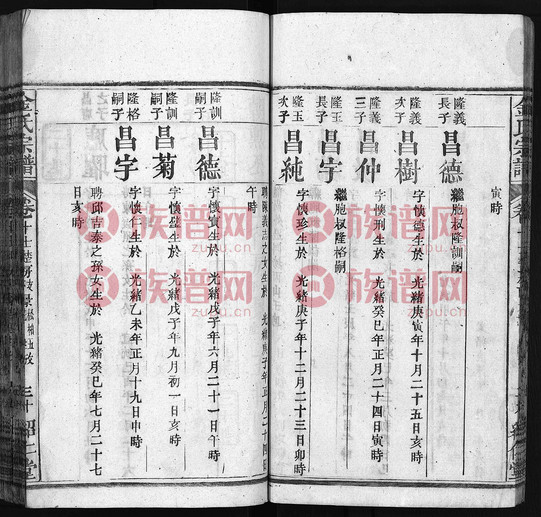 寅時
隆義長子 昌德 繼胞叔隆訓嗣
隆義次子 昌樹 字懷德生於 光緒庚寅年十月二十五日亥時
隆義三子 昌仲 字懷刑生於 光緒癸巳年正月二十四日寅時
隆玉長子 昌宇 繼胞叔隆格嗣
隆玉次子 昌純 字懷珍生於 光緒庚子年十二月二十三日卯時
午時
隆訓嗣子 昌德 字懷寶生於 光緒戊子年六月二十一日午時
隆訓子 昌菊 字懷璧生於 光緒戊子年九月初一日亥時
隆格嗣子 昌宇 字懷仁生於 光緒乙未年正月十九日申時
聘邱吉泰之孫女生於 光緒癸巳年七月二十七
日亥時
金氏宗譜
卷十
三十
金氏宗譜
族譜网
zupu.cn
族譜网
zupu.cn